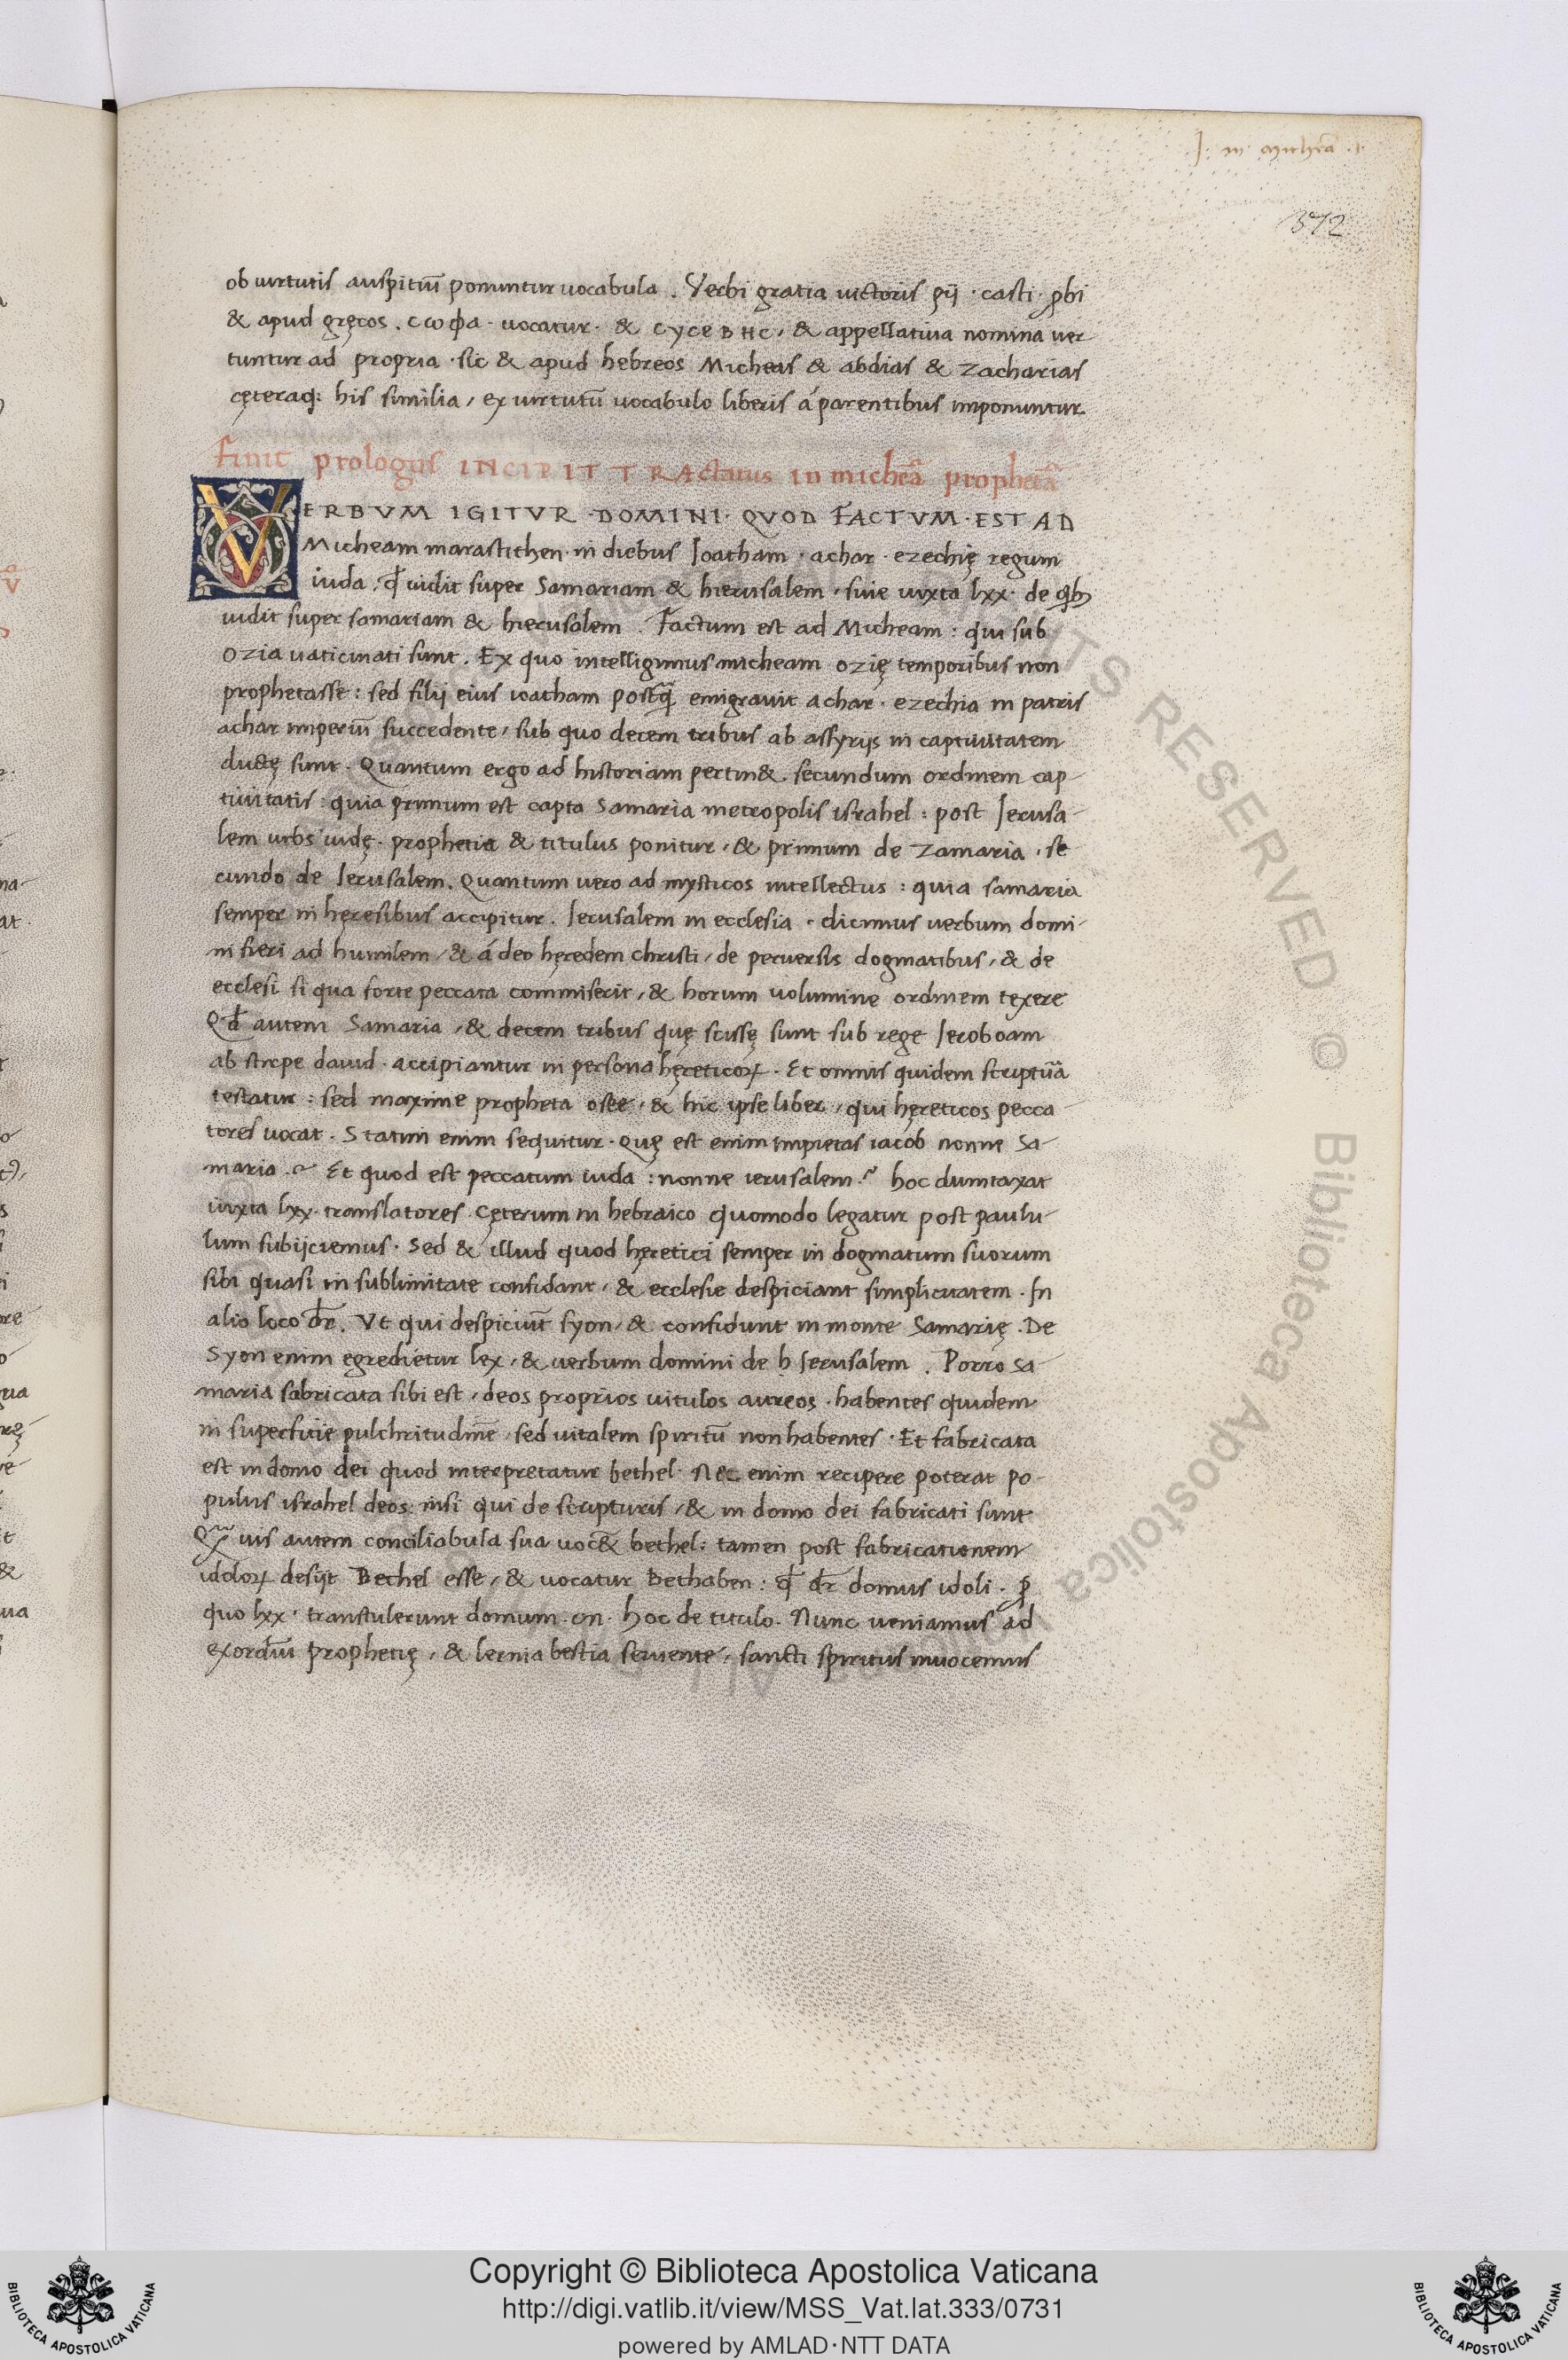 J. in Micheā .1.
372
ob uirtutis auspitiū ponuntur uocabula. Verbi gratia uictoris pij · casti · ꝓbi
& apud gręcos. cωφα · uocatur · & cyceBHC, & appellatiua nomina uer
tuntur ad propria · sic & apud hebreos Micheas & abdias & Zacharias
cęteraq; his similia, ex uirtutū uocabulo liberis á parentibus imponuntur
finit prologus INCIPIT TRActatus in micheā prophetā
VERBVM IGITVR · DOMINI · QVOD FACTVM · EST AD
Micheam marastithen · in diebus Ioatham · achar · ezechię regum
iuda, qđ uidit super Samariam & hierusalem · siue iuxta lxx · de qib;
uidit super samariam & hierusalem. Factum est ad Micheam: qui sub
ozia uaticinati sunt. Ex quo intelligimus micheam ozię temporibus non
prophetasse: sed filij eius ioatham postq̃ emigrauit achar · ezechia in patris
achar imperiū succedente, sub quo decem tribus ab assyrijs in captiuitatem
ductę sunt. Quantum ergo ad historiam pertin&. secundum ordinem cap-
tiuitatis: quia primum est capta Samaria metropolis israhel: post Ierusa-
lem urbs iudę. prophetia & titulus ponitur, & primum de Zamaria, se
cundo de Ierusalem. Quantum uero ad mysticos intellectus: quia samaria
semper in hęresibus accipitur. Ierusalem in ecclesia · dicimus uerbum domi-
ni fieri ad humilem, & á deo hęredem christi, de peruersis dogmatibus, & de
ecclesi si qua forte peccata commiserit, & horum uolumine ordinem texere
Qđ autem Samaria, & decem tribus quę scissę sunt sub rege Ieroboam
ab stirpe dauid · accipiantur in persona hęreticoꝝ. Et omnis quidem scriptūa
testatur: sed maxime propheta osee, & hic ipse liber, qui hęreticos pecca-
tores uocat. Statim enim sequitur. Quę est enim impietas iacob nonne Sa-
maria.? Et quod est peccatum iuda: nonne ierusalem.? hoc dumtaxat
iuxta lxx · translatores. Cęterum in hebraico quomodo legatur post paulu-
lum subijciemus. Sed & illud quod hęretici semper in dogmatum suorum
sibi quasi in sublimitate confidant, & ecclesie despiciant simplicitatem. In
alio loco dr̄. Vę qui despiciūt syon, & confidunt in monte Samarię. De
Syon enim egredietur lex, & uerbum domini de h Ierusalem. Porro sa-
maria fabricata sibi est, deos proprios uitulos aureos · habentes quidem
in superficie pulchritudinē, sed uitalem spiritū non habentes. Et fabricata
est in domo dei quod interpretatur bethel. Nec enim recipere poterat po-
pulus israhel deos: nisi qui de scripturis, & in domo dei fabricati sunt
Qq̃uis autem conciliabula sua uoc& bethel: tamen post fabricationem
idoloꝝ desijt Bethel esse, & uocatur Bethaben: qđ dr̄ domus idoli. ꝓ
quo lxx · transtulerunt domum · on · hoc de titulo. Nunc ueniamus ad
exordiū prophetię, & lernia bestia seruente, sancti spiritus inuocemus
Copyright © Biblioteca Apostolica Vaticana
http://digi.vatlib.it/view/MSS_Vat.lat.333/0731
powered by AMLAD·NTT DATA